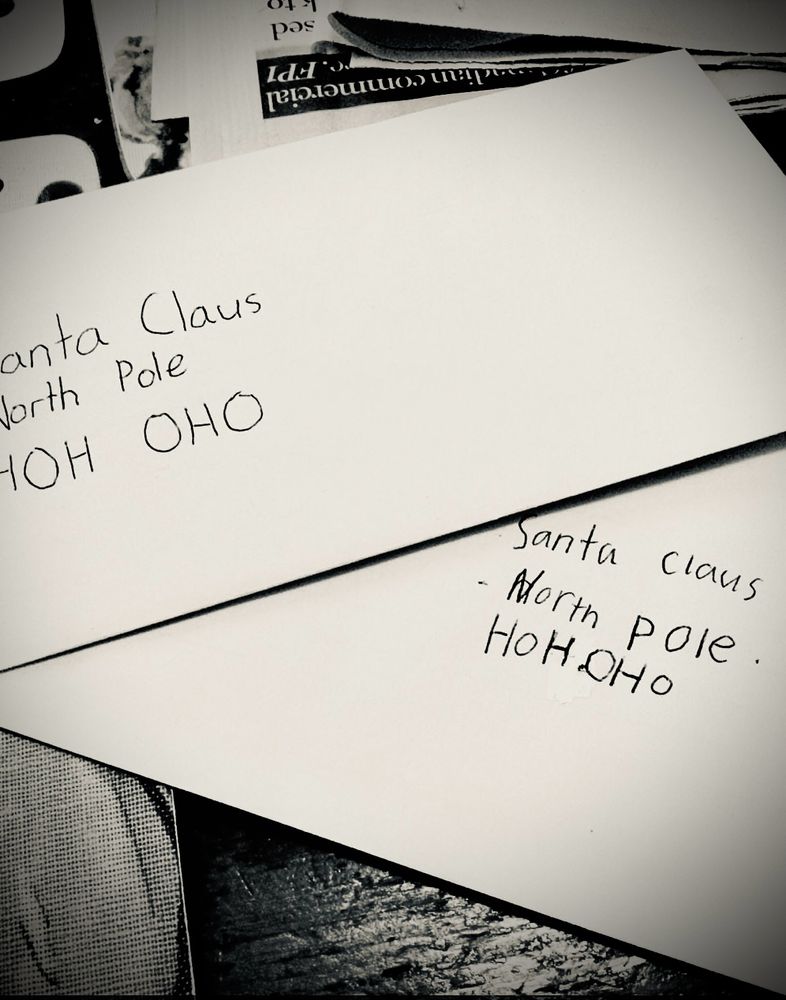 k to
sed
c. FPI
adian commercial
anta Claus
North Pole
HOH OHO
Santa claus
- North pole.
HoH.OHo